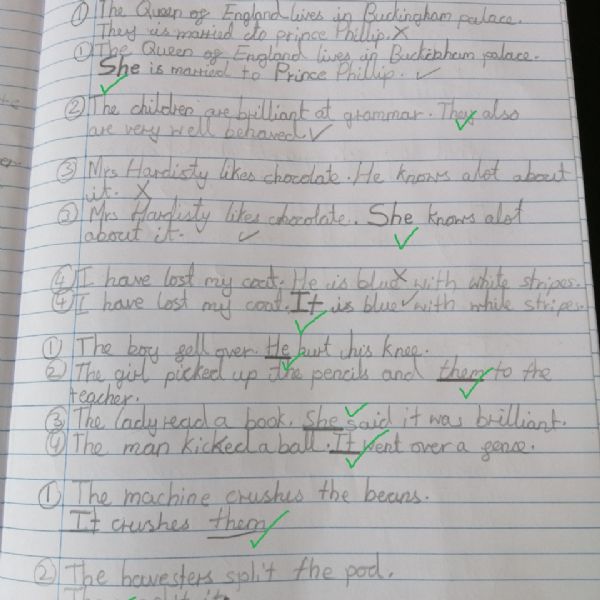 ① The Queen of England lives in Buckingham palace.
They is married to prince Phillip. X
① The Queen of England lives in Buckinbham palace.
She is married to Prince Phillip. ✓
② The children are brilliant at grammar. They also
are very well behaved ✓
③ Mrs Hardisty likes chocolate. He knows alot about
it. X
③ Mrs Hardisty likes chocolate. She knows alot
about it. ✓
④ I have lost my coat. He is blue X with white stripes.
④ I have lost my coat. It is blue ✓ with white stripes.
① The boy fell over. He hurt his knee.
② The girl picked up the pencils and them to the
teacher.
③ The lady read a book. She said it was brilliant.
④ The man kicked a ball. It went over a fence.
① The machine crushes the beans.
It crushes them
② The havesters split the pod.